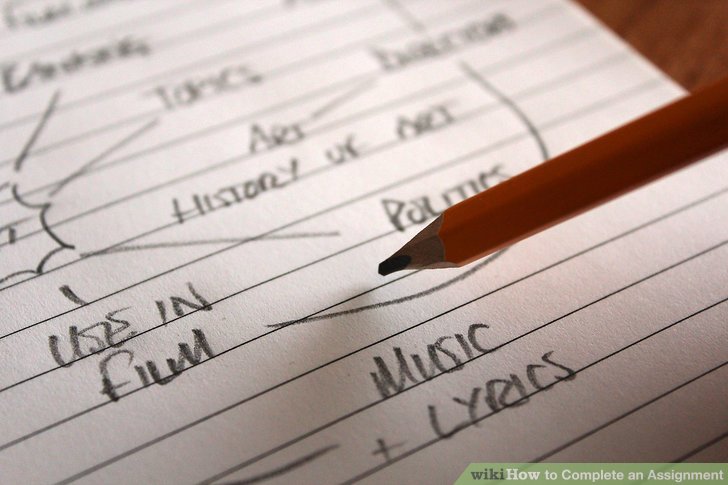 TOPICS
ART
HISTORY OF ART
POLITICS
USE IN
FILM
MUSIC
+ LYRICS
wikiHow to Complete an Assignment